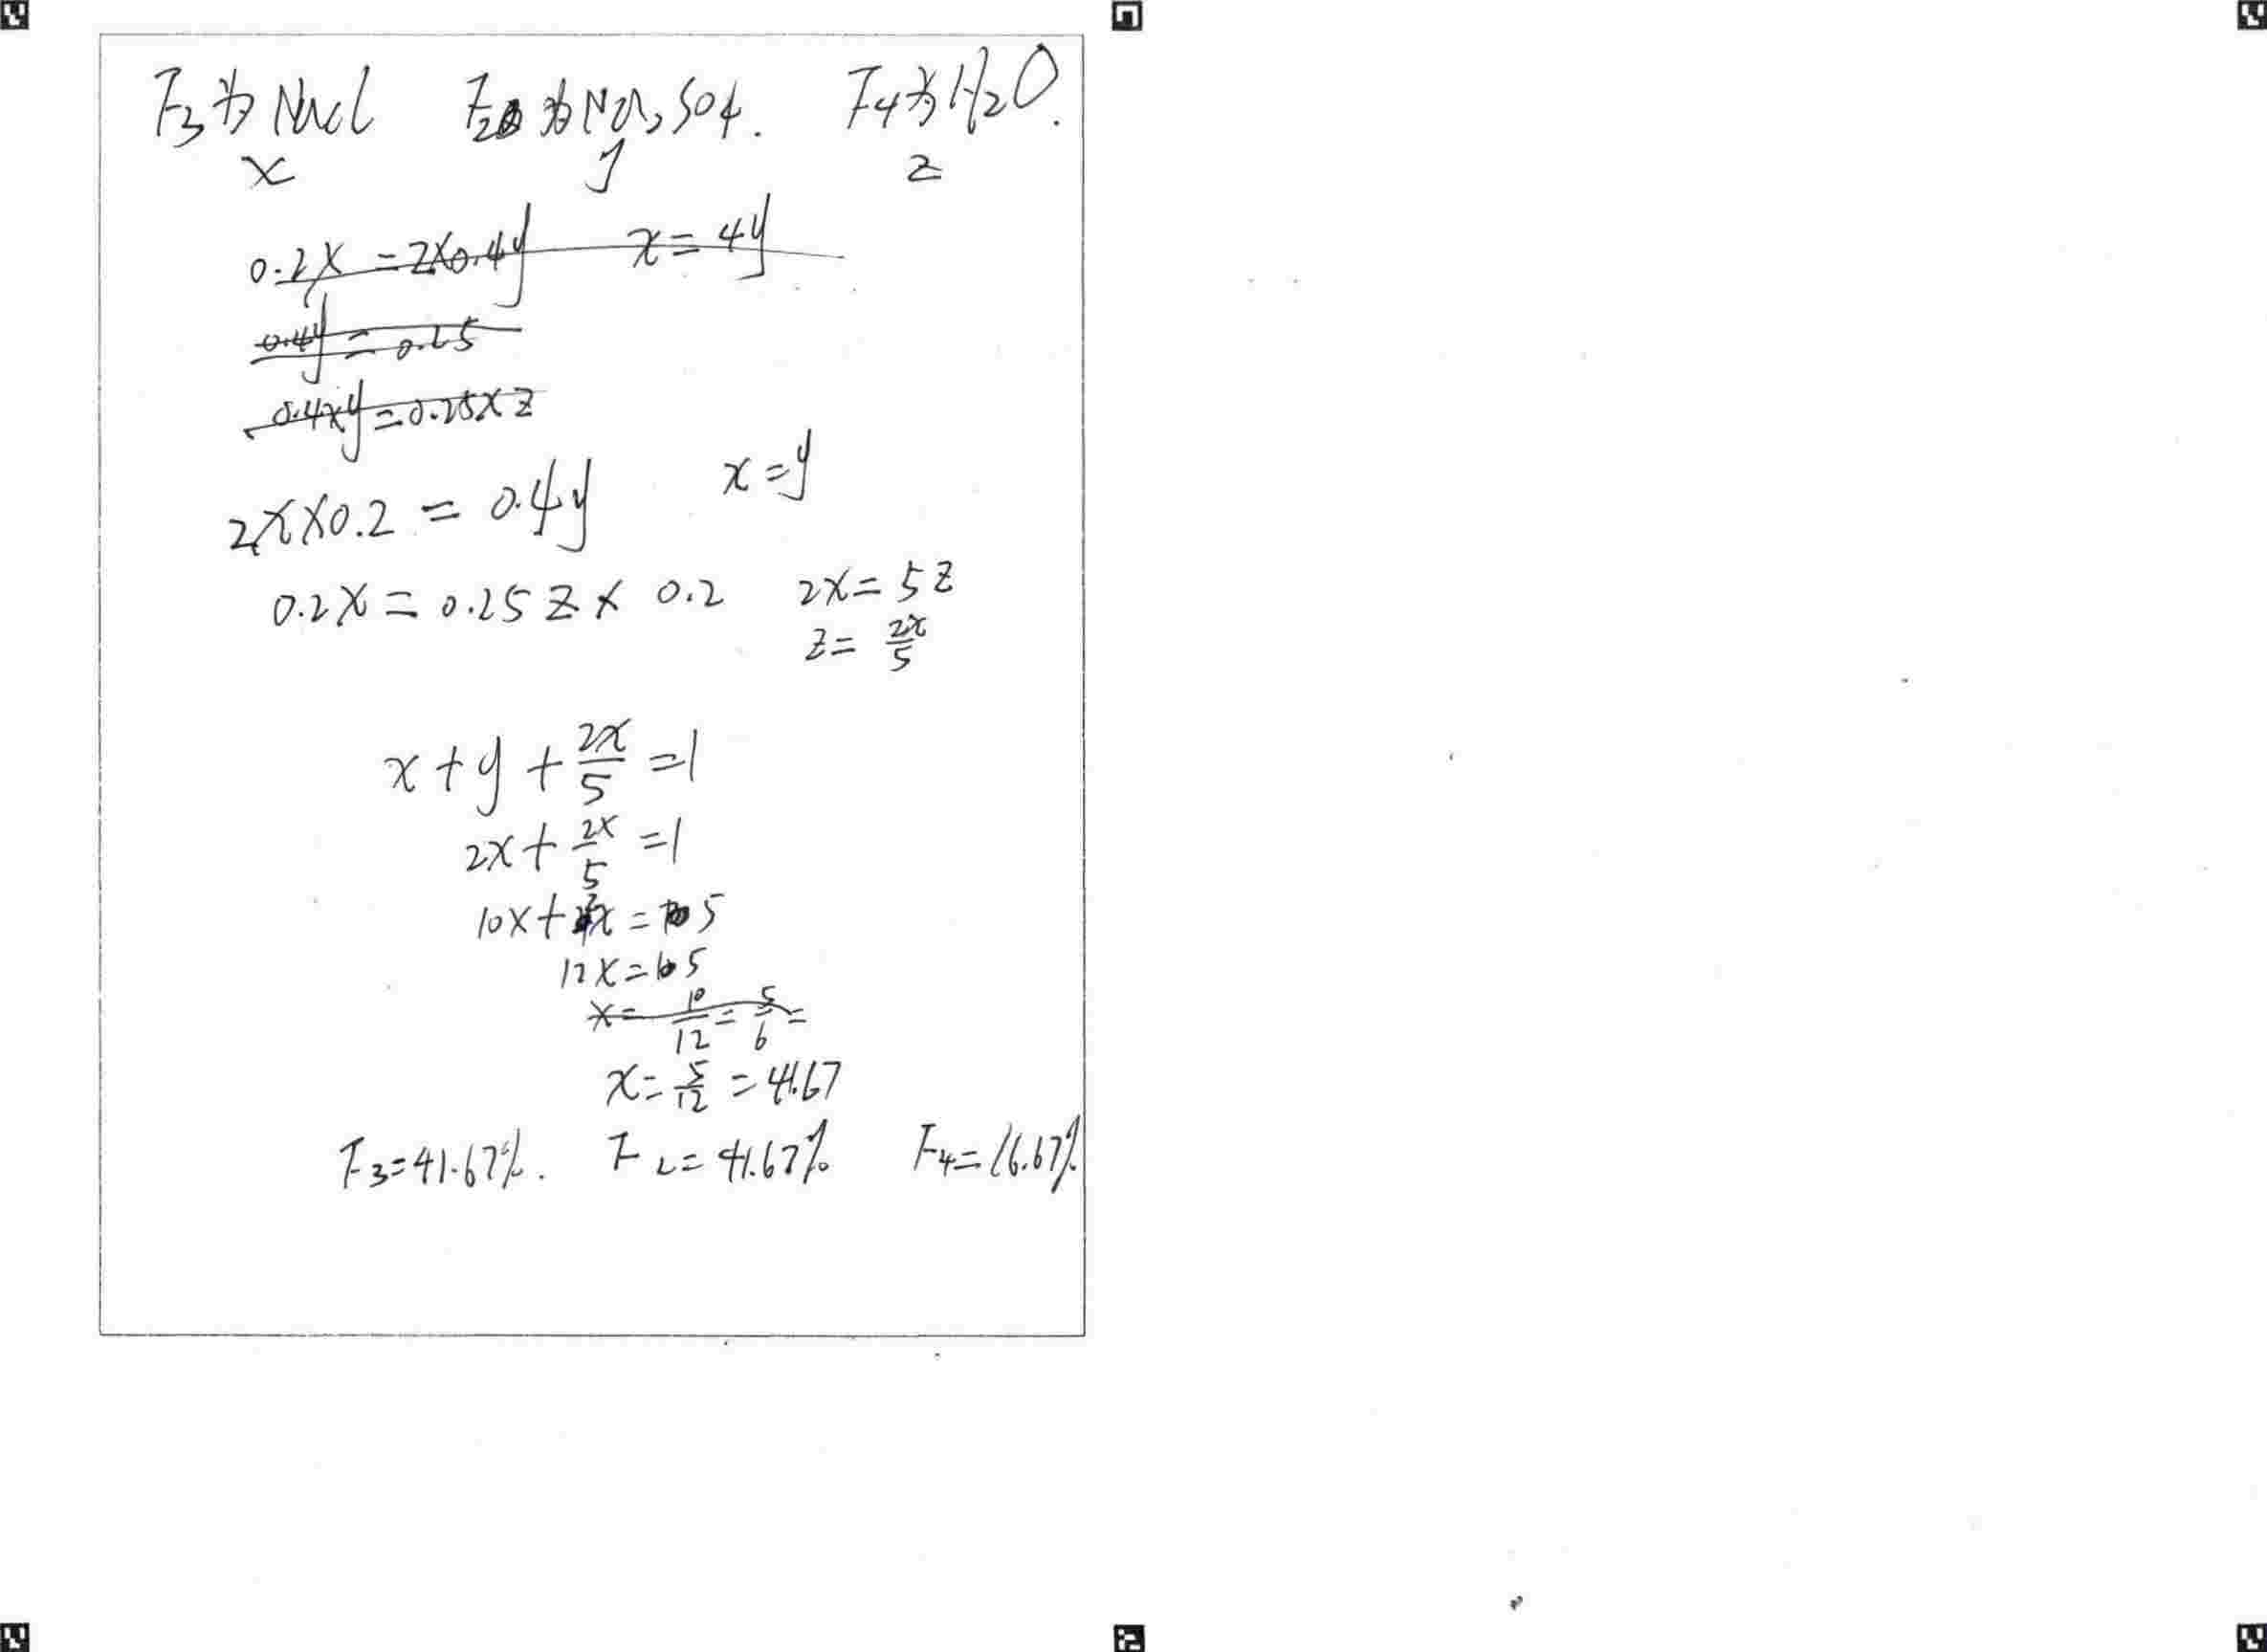 F3为Nacl F2为Na2SO4. F4为H2O.
x y z
0.2x = 2x0.4y x = 4y
0.4y = 0.25
0.4xy = 0.25xz
2x×0.2 = 0.4y x = y
0.2x = 0.25z × 0.2 2x = 5z
z = 2x/5
x + y + 2x/5 = 1
2x + 2x/5 = 1
10x + 2x = 5
12x = 5
x = 10/12 = 5/6 =
x = 5/12 = 41.67
F3=41.67%. F2=41.67% F4=16.67%